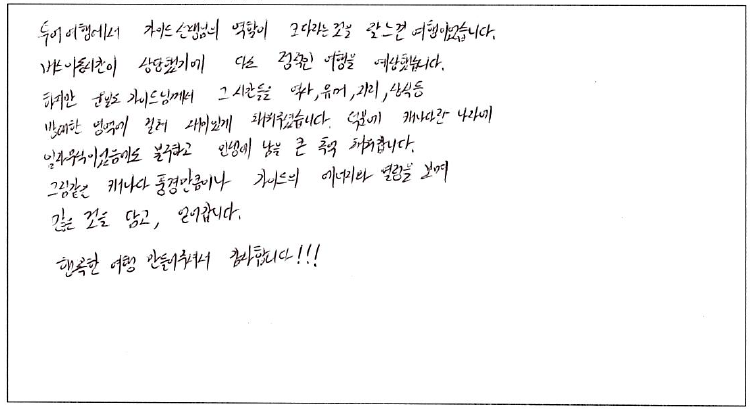 투어 여행에서 가이드 선생님의 역할이 크다라는 것을 잘 느낀 여행이었습니다.
버스 이동시간이 상당했기에 다소 정적인 여행을 예상했습니다.
하지만 가이드님께서 그 시간들을 역사, 유머, 지리, 상식 등
방대한 영역에 걸쳐 재미있게 채워주셨습니다. 덕분에 캐나다란 나라에
일자무식이었음에도 불구하고 인생에 남을 큰 획을 하였습니다.
그림같은 캐나다 풍경만큼이나 가이드의 에너지와 열정을 보며
깊은 것을 담고, 얻어갑니다.
행복한 여행 만들어주셔서 감사합니다!!!